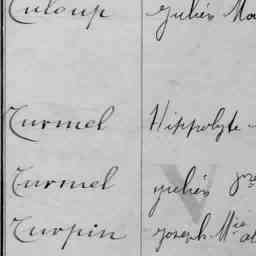 Tuloup Julien
Turmel Hippolyte
Turmel Julien
Turpin Joseph Mie